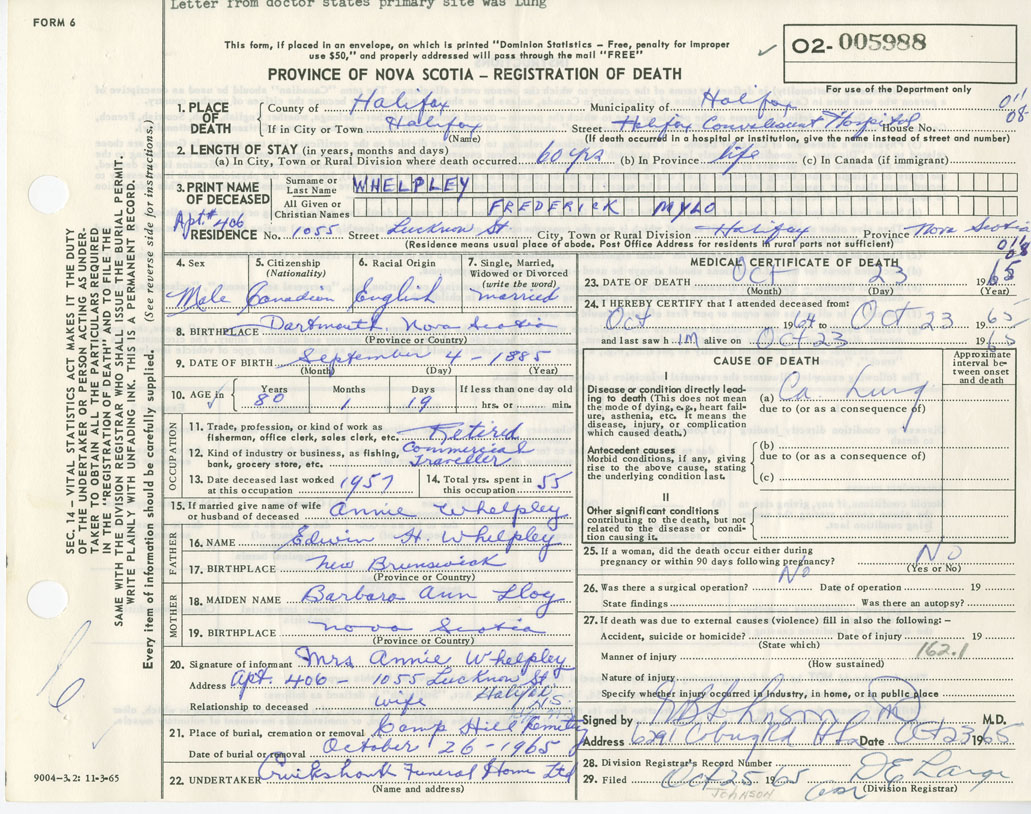 Letter from doctor states primary site was Lung
FORM 6
This form, if placed in an envelope, on which is printed "Dominion Statistics – Free, penalty for improper
use $50," and properly addressed will pass through the mail "FREE"
O2- 005988
For use of the Department only
PROVINCE OF NOVA SCOTIA – REGISTRATION OF DEATH
1. PLACE OF DEATH
County of Halifax Municipality of Halifax
If in City or Town Halifax Street Halifax Convalescent Hospital House No.
(Name) (If death occurred in a hospital or institution, give the name instead of street and number)
011
08-
2. LENGTH OF STAY (in years, months and days)
(a) In City, Town or Rural Division where death occurred 60 yrs (b) In Province life (c) In Canada (if immigrant)
3. PRINT NAME OF DECEASED
Surname or Last Name WHELPLEY
All Given or Christian Names FREDERICK MYLO
Apt.# 406
RESIDENCE No. 1055 Street Lucknow St. City, Town or Rural Division Halifax Province Nova Scotia
(Residence means usual place of abode. Post Office Address for residents in rural parts not sufficient)
4. Sex Male
5. Citizenship (Nationality) Canadian
6. Racial Origin English
7. Single, Married, Widowed or Divorced (write the word) married
8. BIRTHPLACE Dartmouth, Nova Scotia
(Province or Country)
9. DATE OF BIRTH September 4 - 1885
(Month) (Day) (Year)
10. AGE in Years 80 Months 1 Days 19 If less than one day old hrs. or min.
OCCUPATION
11. Trade, profession, or kind of work as fisherman, office clerk, sales clerk, etc. Retired
12. Kind of industry or business, as fishing, bank, grocery store, etc. Commercial Traveller
13. Date deceased last worked at this occupation 1957
14. Total yrs. spent in this occupation 55
15. If married give name of wife or husband of deceased Annie Whelpley
FATHER
16. NAME Edwin H. Whelpley
17. BIRTHPLACE New Brunswick
(Province or Country)
MOTHER
18. MAIDEN NAME Barbara Ann
19. BIRTHPLACE Nova Scotia
(Province or Country)
20. Signature of informant Mrs Annie Whelpley
Address Apt. 406 - 1055 Lucknow St. Halifax NS
Relationship to deceased wife
21. Place of burial, cremation or removal Camp Hill Cemetery
Date of burial or removal October 26 - 1965
22. UNDERTAKER Cruikshank Funeral Home Ltd
(Name and address)
MEDICAL CERTIFICATE OF DEATH
23. DATE OF DEATH Oct 23 1965
(Month) (Day) (Year)
24. I HEREBY CERTIFY that I attended deceased from:
Oct 1964 to Oct 23 1965
and last saw h im alive on Oct 23 1965
CAUSE OF DEATH
Approximate interval between onset and death
I
Disease or condition directly leading to death (This does not mean the mode of dying, e.g., heart failure, asthenia, etc. It means the disease, injury, or complication which caused death.)
(a) Ca. Lung
due to (or as a consequence of)
Antecedent causes
Morbid conditions, if any, giving rise to the above cause, stating the underlying condition last.
(b)
due to (or as a consequence of)
(c)
II
Other significant conditions contributing to the death, but not related to the disease or condition causing it.
25. If a woman, did the death occur either during pregnancy or within 90 days following pregnancy? No
(Yes or No)
26. Was there a surgical operation? No Date of operation 19
State findings Was there an autopsy?
27. If death was due to external causes (violence) fill in also the following: –
Accident, suicide or homicide? Date of injury 19
(State which)
Manner of injury 162.1
(How sustained)
Nature of injury
Specify whether injury occurred in industry, in home, or in public place
Signed by M.D.
Address 6291 Coburg Rd Hfx Date Oct 23 1965
28. Division Registrar's Record Number
29. Filed Oct 25 1965 D E Large
(Division Registrar)
JOHNSON
SEC. 14 – VITAL STATISTICS ACT MAKES IT THE DUTY
OF THE UNDERTAKER OR PERSON ACTING AS UNDER-
TAKER TO OBTAIN ALL THE PARTICULARS REQUIRED
IN THE "REGISTRATION OF DEATH" AND TO FILE THE
SAME WITH THE DIVISION REGISTRAR WHO SHALL ISSUE THE BURIAL PERMIT.
WRITE PLAINLY WITH UNFADING INK. THIS IS A PERMANENT RECORD.
Every item of information should be carefully supplied. (See reverse side for instructions.)
9004-3.2: 11-3-65